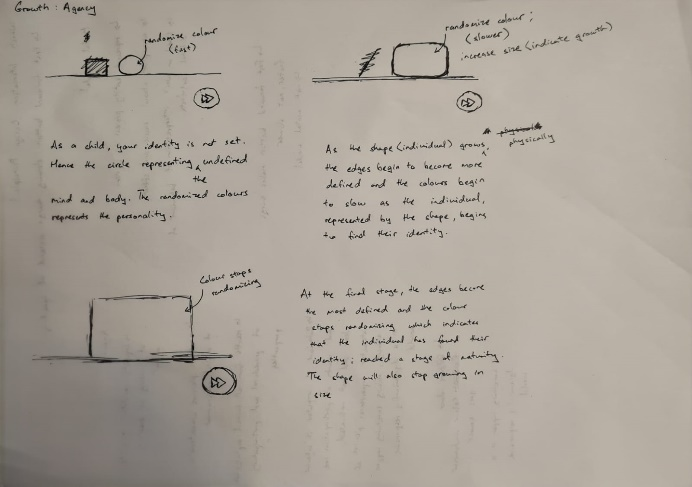 Growth : Agency
randomize colour
(fast)
As a child, your identity is not set.
Hence the circle representing the undefined
mind and body. The randomized colours
represents the personality.
randomize colour ;
(slower)
increase size (indicate growth)
As the shape (individual) grows, physically
the edges begin to become more
defined and the colours begin
to slow as the individual,
represented by the shape, begins
to find their identity.
Colour stops
randomizing
At the final stage, the edges become
the most defined and the colour
stops randomizing which indicates
that the individual has found their
identity ; reached a stage of maturity.
The shape will also stop growing in
size